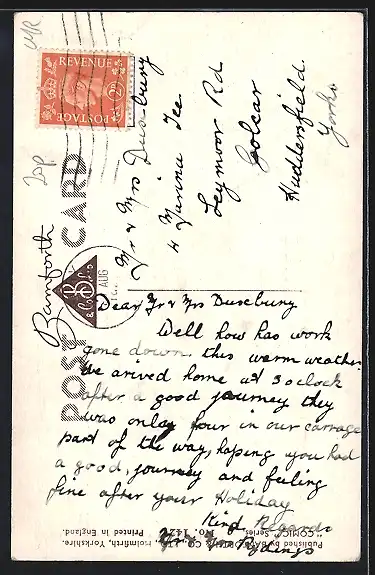 REVENUE
POSTAGE
POST CARD
Bamforth
AUG
Mr & Mrs Dusebury
4
Leymoor Rd
Golcar
Huddersfield.
Yorks
Dear Mr & Mrs Dusebury
Well how has work
gone down this warm weather.
We arived home at 3 oclock
after a good journey they
was onlay four in our carrage
part of the way, hoping you had
a good journey and feiling
fine after your Holiday
Kind Regards
Published by BAMFORTH & CO., Ltd., Holmfirth, Yorkshire.
"COMIC" Series No.
Printed in England.